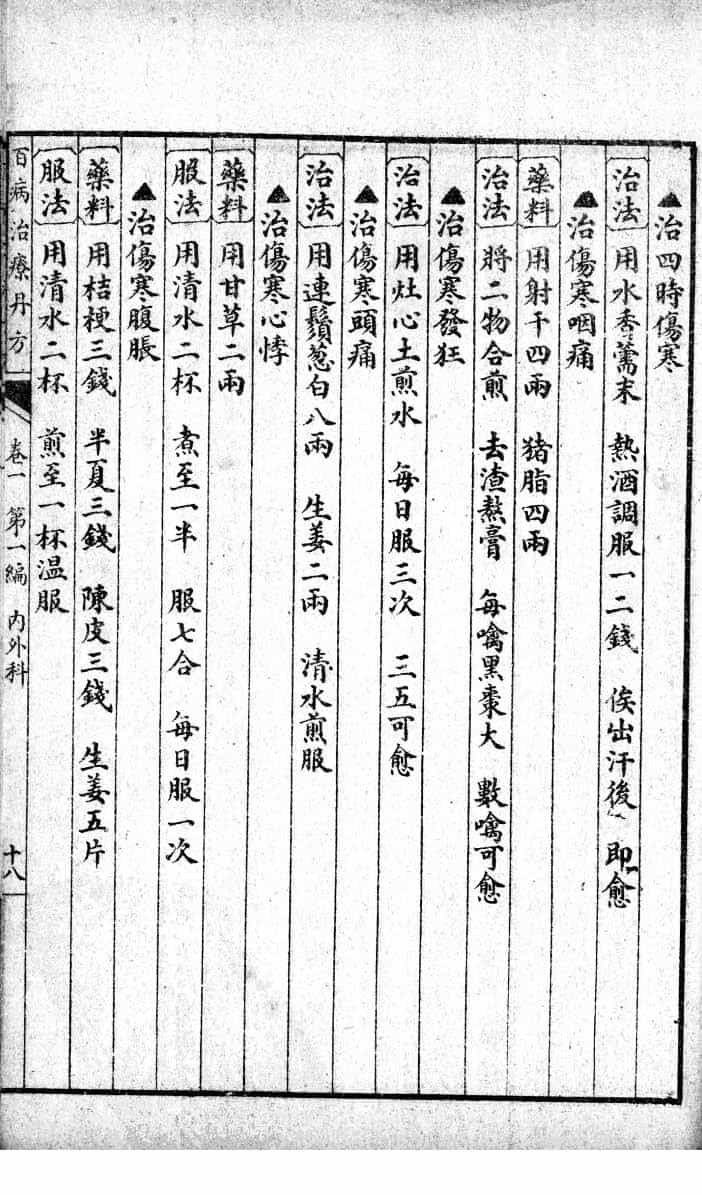 ▲治四時傷寒
治法 用水香薷末 熱酒調服一二錢 俟出汗後 即愈
▲治傷寒咽痛
藥料 用射干四兩 猪脂四兩
治法 將二物合煎 去渣熬膏 每噙黑棗大 數噙可愈
▲治傷寒發狂
治法 用灶心土煎水 每日服三次 三五可愈
▲治傷寒頭痛
治法 用連鬚葱白八兩 生姜二兩 清水煎服
▲治傷寒心悸
藥料 用甘草二兩
服法 用清水二杯 煮至一半 服七合 每日服一次
▲治傷寒腹脹
藥料 用桔梗三錢 半夏三錢 陳皮三錢 生姜五片
服法 用清水二杯 煎至一杯温服
百病治療丹方 卷一 第一編 內外科 十八